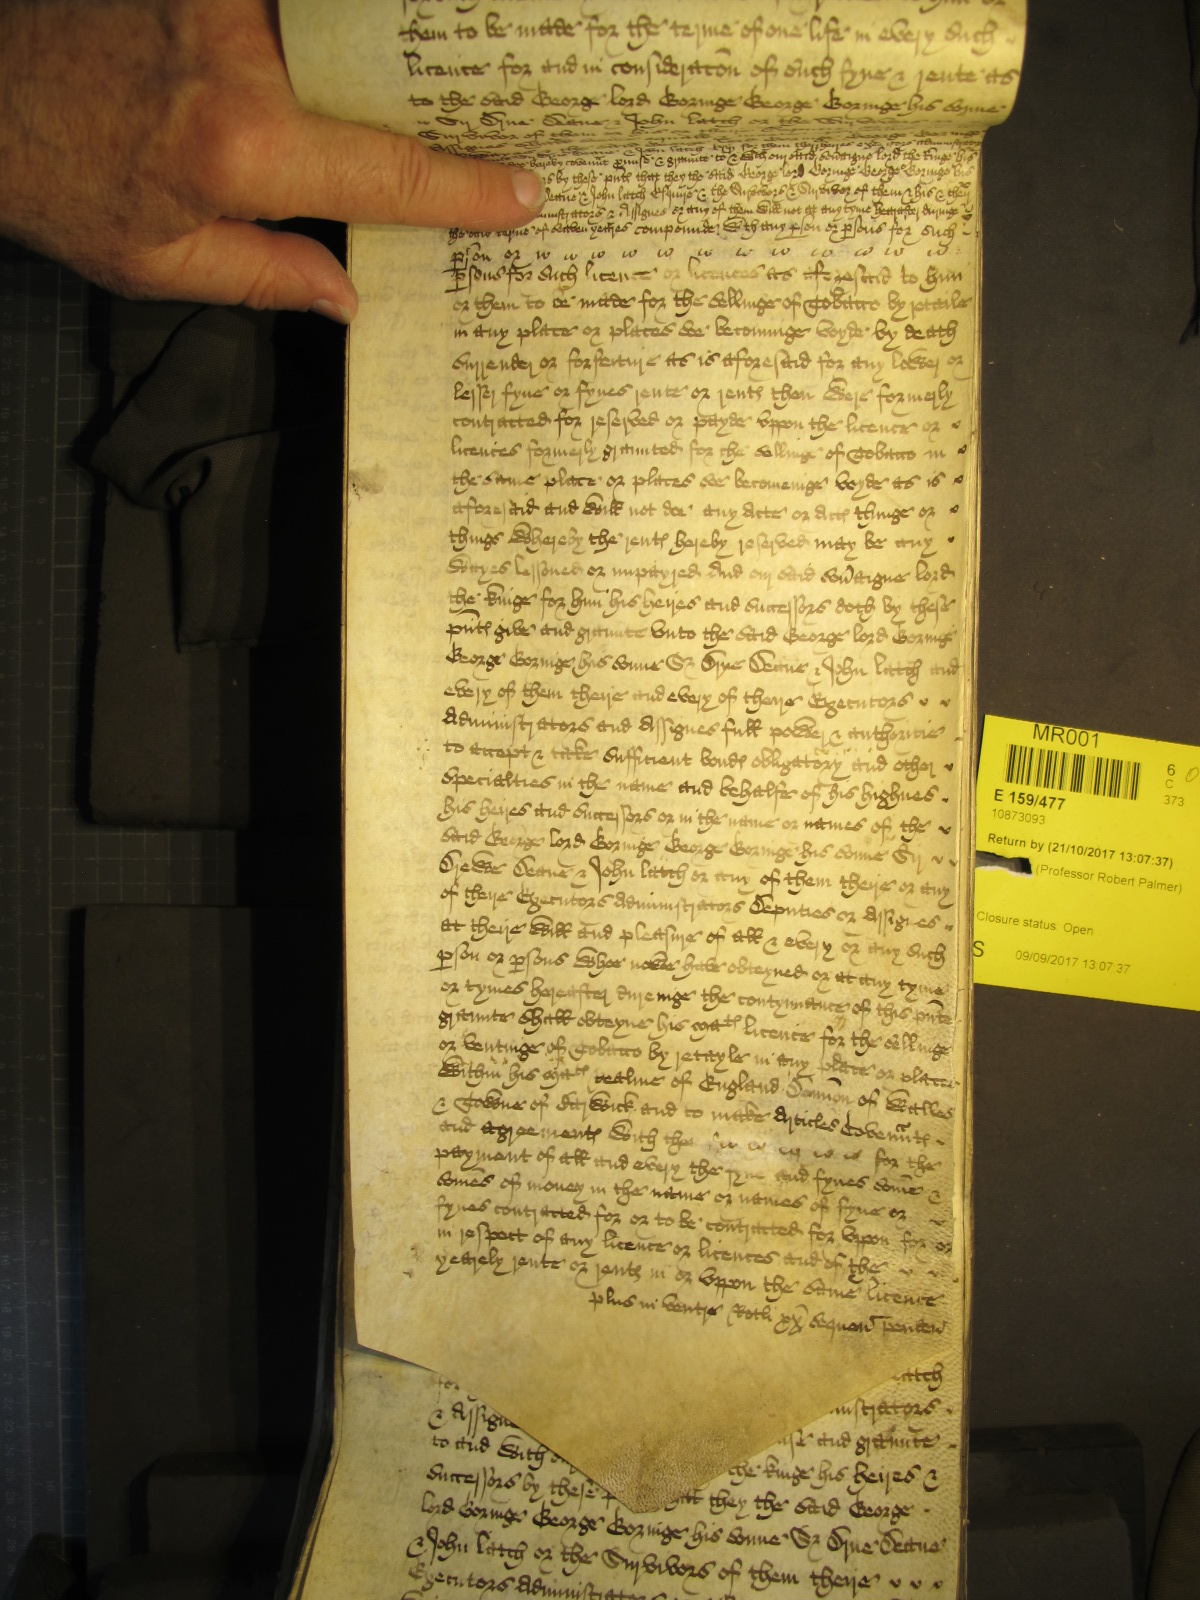 them to be made for the terme of one life in every such
licence for and in consideracon of such fyne & rente as
to the said George lord Goringe George Goringe his sonne
John Latch or the
Survivor of them
hereby covennt pmise & graunte to & with our said soveraigne lord the kinge his
by these pnts that they the said George lord Goringe George Goringe his
Deane & John Latch Esquire & the Survivors & Survivor of them & his & their
Assignes or any of them will not at any tyme hereafter duringe
the said terme of seaven yeares compounde with any pson or psons for such
pson or
psons for such licence or licences as aforesaid to him
or them to be made for the sellinge of Tobacco by retaile
in any place or places soe becominge voyde by death
surrender or forfeiture as is aforesaid for any lower or
lesser fyne or fynes rente or rents then were formerly
contracted for reserved or payde uppon the licence or
licences formerly graunted for the sellinge of Tobacco in
the same place or places soe becomeinge voyde as is
aforesaid and will not doe any acte or acts thinge or
things whereby the rents hereby reserved may be any
wayes lessoned or impayred And our said sovaigne lord
the kinge for him his heires and successors doth by these
pnts give and graunte unto the said George lord Goringe
George Goringe his sonne Sr Drue Deane & John Latch and
every of them theire and every of theire Executors
Administrators and Assignes full power & authoritie
to accept & take sufficient bonds obligatory and other
specialties in the name and behalfe of his highnes
his heires and successors or in the name or names of the
said George lord Goringe George Goringe his sonne Sr
Drewe Deane & John Latch or any of them theire or any
of theire Executors Administrators Deputies or Assignes
at theire will and pleasure of all & every or any such
pson or psons whoe nowe have obteyned or at any tyme
or tymes hereafter dureinge the contynuance of this pnte
graunte shall obteyne his mats licence for the sellinge
or ventinge of Tobacco by retayle in any place or places
within his mats realme of England Domion of Walles
& Towne of Barwick and to make Articles Covennts
and agreements with the for the
payment of all and every the fyne and fynes some &
somes of money in the name or names of fyne or
fynes contracted for or to be contracted for uppon for or
in respect of any licence or licences and of the
yearely rente or rents in or uppon the same licence
plus in ventre Rotli xx sequen penden
Latch
& Assignes
graunte
to and with the kinge his heires &
successors by these they the said George
lord Goringe George Goringe his sonne Sr Drue Deane
& John Latch or the Survivors of them theire
Executors Administrators
MR001
6
C
373
E 159/477
10873093
Return by (21/10/2017 13:07:37)
(Professor Robert Palmer)
Closure status: Open
S
09/09/2017 13:07:37